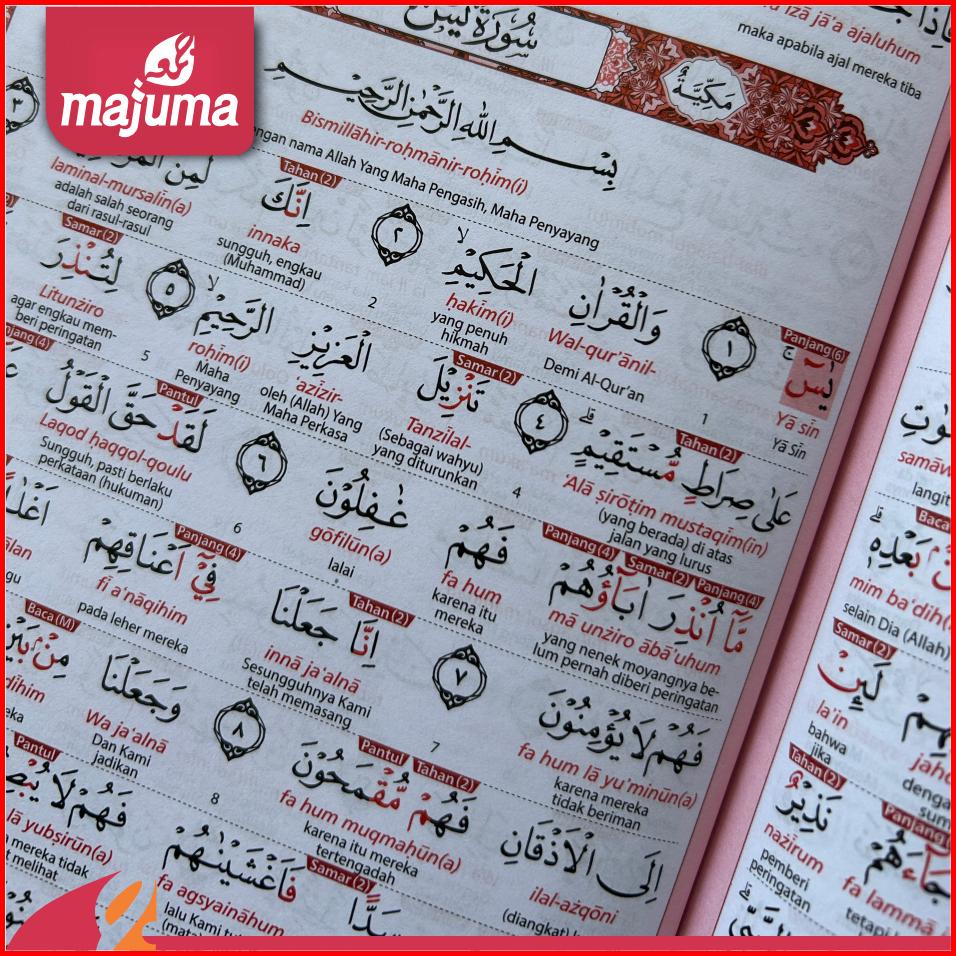 majuma
maka apabila ajal mereka tiba
سُورَةُ يٰسٓ
مَكِّيَّةٌ
بِسْمِ اللّٰهِ الرَّحْمٰنِ الرَّحِيْمِ
Bismillāhir-roḥmānir-roḥīm(i)
dengan nama Allah Yang Maha Pengasih, Maha Penyayang
Panjang (6) Tahan (2)
يٰسۤ ۚ ١ وَالْقُرْاٰنِ الْحَكِيْمِ ۙ ٢ اِنَّكَ لَمِنَ الْمُرْسَلِيْنَ ٣
Yā sīn Wal-qur'ānil- ḥakīm(i) innaka laminal-mursalīn(a)
Yā Sīn Demi Al-Qur'an yang penuh hikmah sungguh, engkau (Muhammad) adalah salah seorang dari rasul-rasul
1 2
Tahan (2) Samar (2) Samar (2)
عَلٰى صِرَاطٍ مُّسْتَقِيْمٍ ۗ ٤ تَنْزِيْلَ الْعَزِيْزِ الرَّحِيْمِ ۙ ٥ لِتُنْذِرَ
'Alā ṣirōṭim mustaqīm(in) Tanzīlal- 'azīzir- roḥīm(i) Litunżiro
(yang berada) di atas jalan yang lurus (Sebagai wahyu) yang diturunkan oleh (Allah) Yang Maha Perkasa Maha Penyayang agar engkau mem-beri peringatan
4 5
Panjang (4) Samar (2) Panjang (4) Pantul Panjang (4)
مَّآ اُنْذِرَ اٰبَاۤؤُهُمْ فَهُمْ غٰفِلُوْنَ ٦ لَقَدْ حَقَّ الْقَوْلُ
mā unżiro ābā'uhum fa hum gōfilūn(a) Laqod ḥaqqol-qoulu
yang nenek moyangnya be-lum pernah diberi peringatan karena itu mereka lalai Sungguh, pasti berlaku perkataan (hukuman)
6
Tahan (2) Panjang (4)
فَهُمْ لَا يُؤْمِنُوْنَ ٧ اِنَّا جَعَلْنَا فِيْٓ اَعْنَاقِهِمْ
fa hum lā yu'minūn(a) innā ja'alnā fī a'nāqihim
karena mereka tidak beriman Sesungguhnya Kami telah memasang pada leher mereka
7
Pantul Tahan (2) Baca (M)
اِلَى الْاَذْقَانِ فَهُمْ مُّقْمَحُوْنَ ٨ وَجَعَلْنَا مِنْۢ بَيْنِ
ilal-ażqōni fa hum muqmaḥūn(a) Wa ja'alnā
(diangkat) karena itu mereka tertengadah Dan Kami jadikan
8
Samar (2) Pantul
سَدًّا فَاَغْشَيْنٰهُمْ فَهُمْ لَا
fa agsyaināhum lā yubṣirūn(a)
lalu Kami mereka tidak melihat
langit
mim ba'dih(
selain Dia (Allah)
Samar (2)
لَىِٕنْ
la'in
bahwa
jika
Tahan (2)
نَذِيْرٌ
nażīrum
pemberi
peringatan
Panjang
جَاۤءَهُمْ
fa lammā